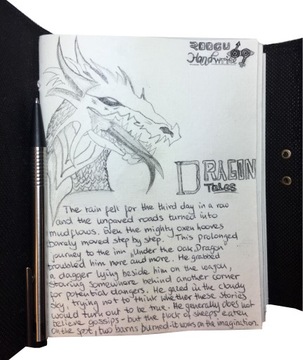 Handworks
DRAGON
Tales
The rain fell for the third day in a row
and the unpaved roads turned into
mudflows. Even the mighty oxen hooves
barely moved step by step. This prolonged
journey to the inn "Under the Oak Dragon"
troubled him more and more. He grabbed
a dagger lying beside him on the wagon,
staring somewhere behind another corner
for potential dangers. He gazed in the cloudy
sky, trying not to think whether these stories
would turn out to be true. He generally does not
believe gossips - but the flock of sheeps eaten
on the spot, two barns burned - it looms on the imagination.